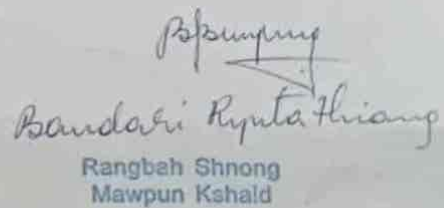 Bandari Ryntathiang
Rangbah Shnong
Mawpun Kshaid